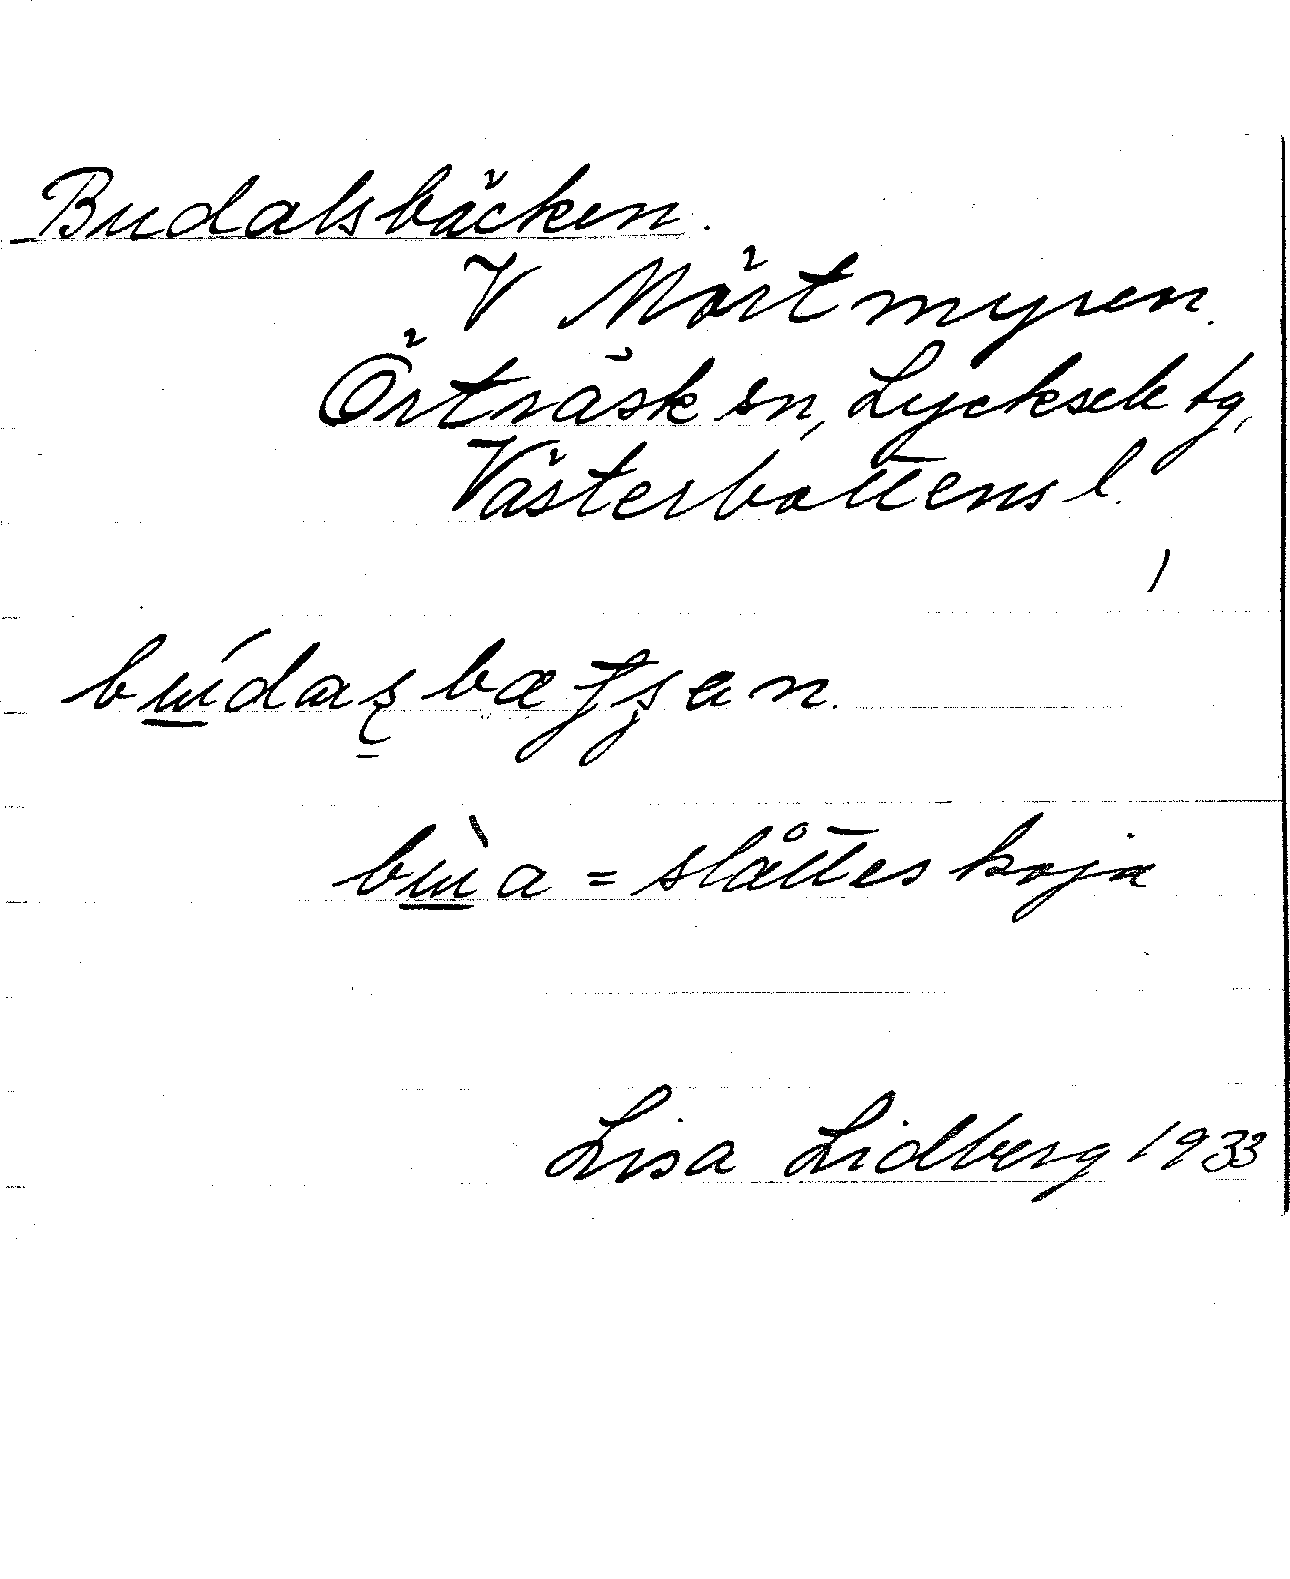 Budalsbäcken.
V Mörtmyren.
Örträsk sn, Lycksele tg,
Västerbottens l.
bɯ́daʂbætʃʂan.
bɯ̀a = slåtteskoja
Lisa Lidberg 1933